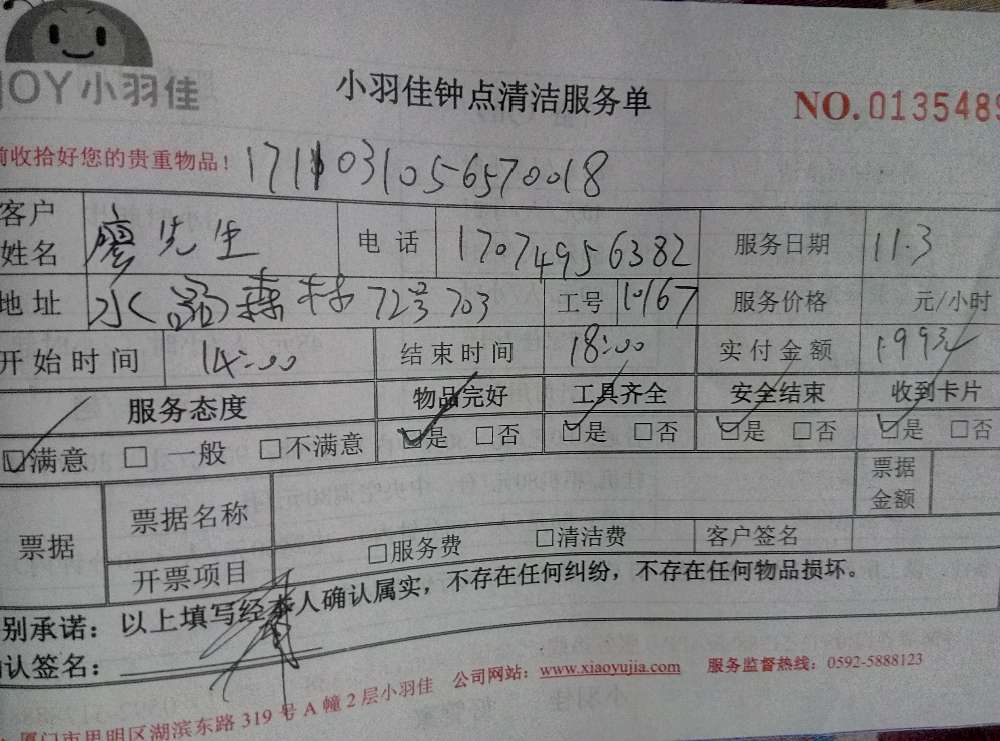 JOY小羽佳
小羽佳钟点清洁服务单
NO.0135489
前收拾好您的贵重物品! 1711031056570018
客户姓名 廖先生 电话 17074956382 服务日期 11.3
地址 水晶森林72号703 工号 10167 服务价格 元/小时
开始时间 14:00 结束时间 18:00 实付金额 199元
服务态度 物品完好 工具齐全 安全结束 收到卡片
☑满意 □一般 □不满意 ☑是 □否 ☑是 □否 ☑是 □否 ☑是 □否
票据 票据名称 票据金额
开票项目 □服务费 □清洁费 客户签名
别承诺：以上填写经本人确认属实，不存在任何纠纷，不存在任何物品损坏。
确认签名：
厦门市思明区湖滨东路319号A幢2层小羽佳 公司网站：www.xiaoyujia.com 服务监督热线：0592-5888123